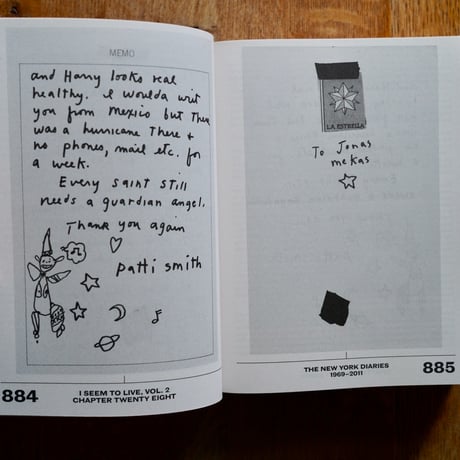 MEMO
and Harry looks real
healthy. I woulda writ
you from Mexico but There
was a hurricane There +
no phones, mail etc. for
a week.
Every saint still
needs a guardian angel.
Thank you again
patti smith
884
I SEEM TO LIVE, VOL. 2
CHAPTER TWENTY EIGHT
LA ESTRELLA
To Jonas
mekas
THE NEW YORK DIARIES
1969–2011
885